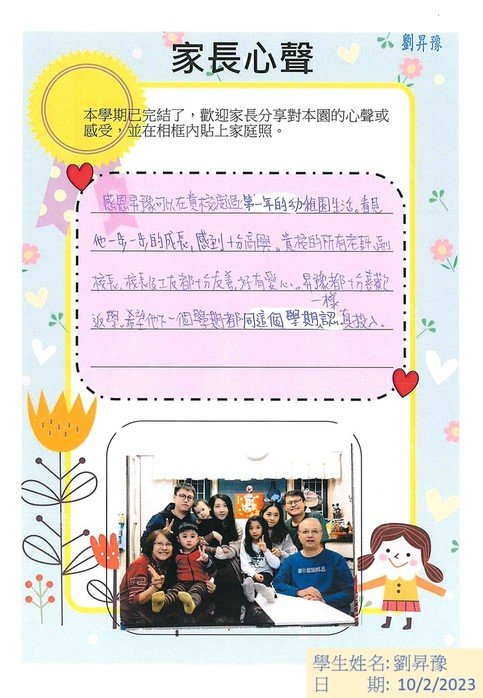 劉昇豫
家長心聲
本學期已完結了，歡迎家長分享對本園的心聲或
感受，並在相框內貼上家庭照。
感恩昇豫可以在貴校渡過第一年的幼稚園生活。看見
他一步一步的成長，感到十分高興。貴校的所有老師、副
校長、校長及工友都十分友善，好有愛心。昇豫都十分喜歡
一樣
返學。希望他下一個學期都同這個學期認真投入。
學生姓名: 劉昇豫
日　期: 10/2/2023